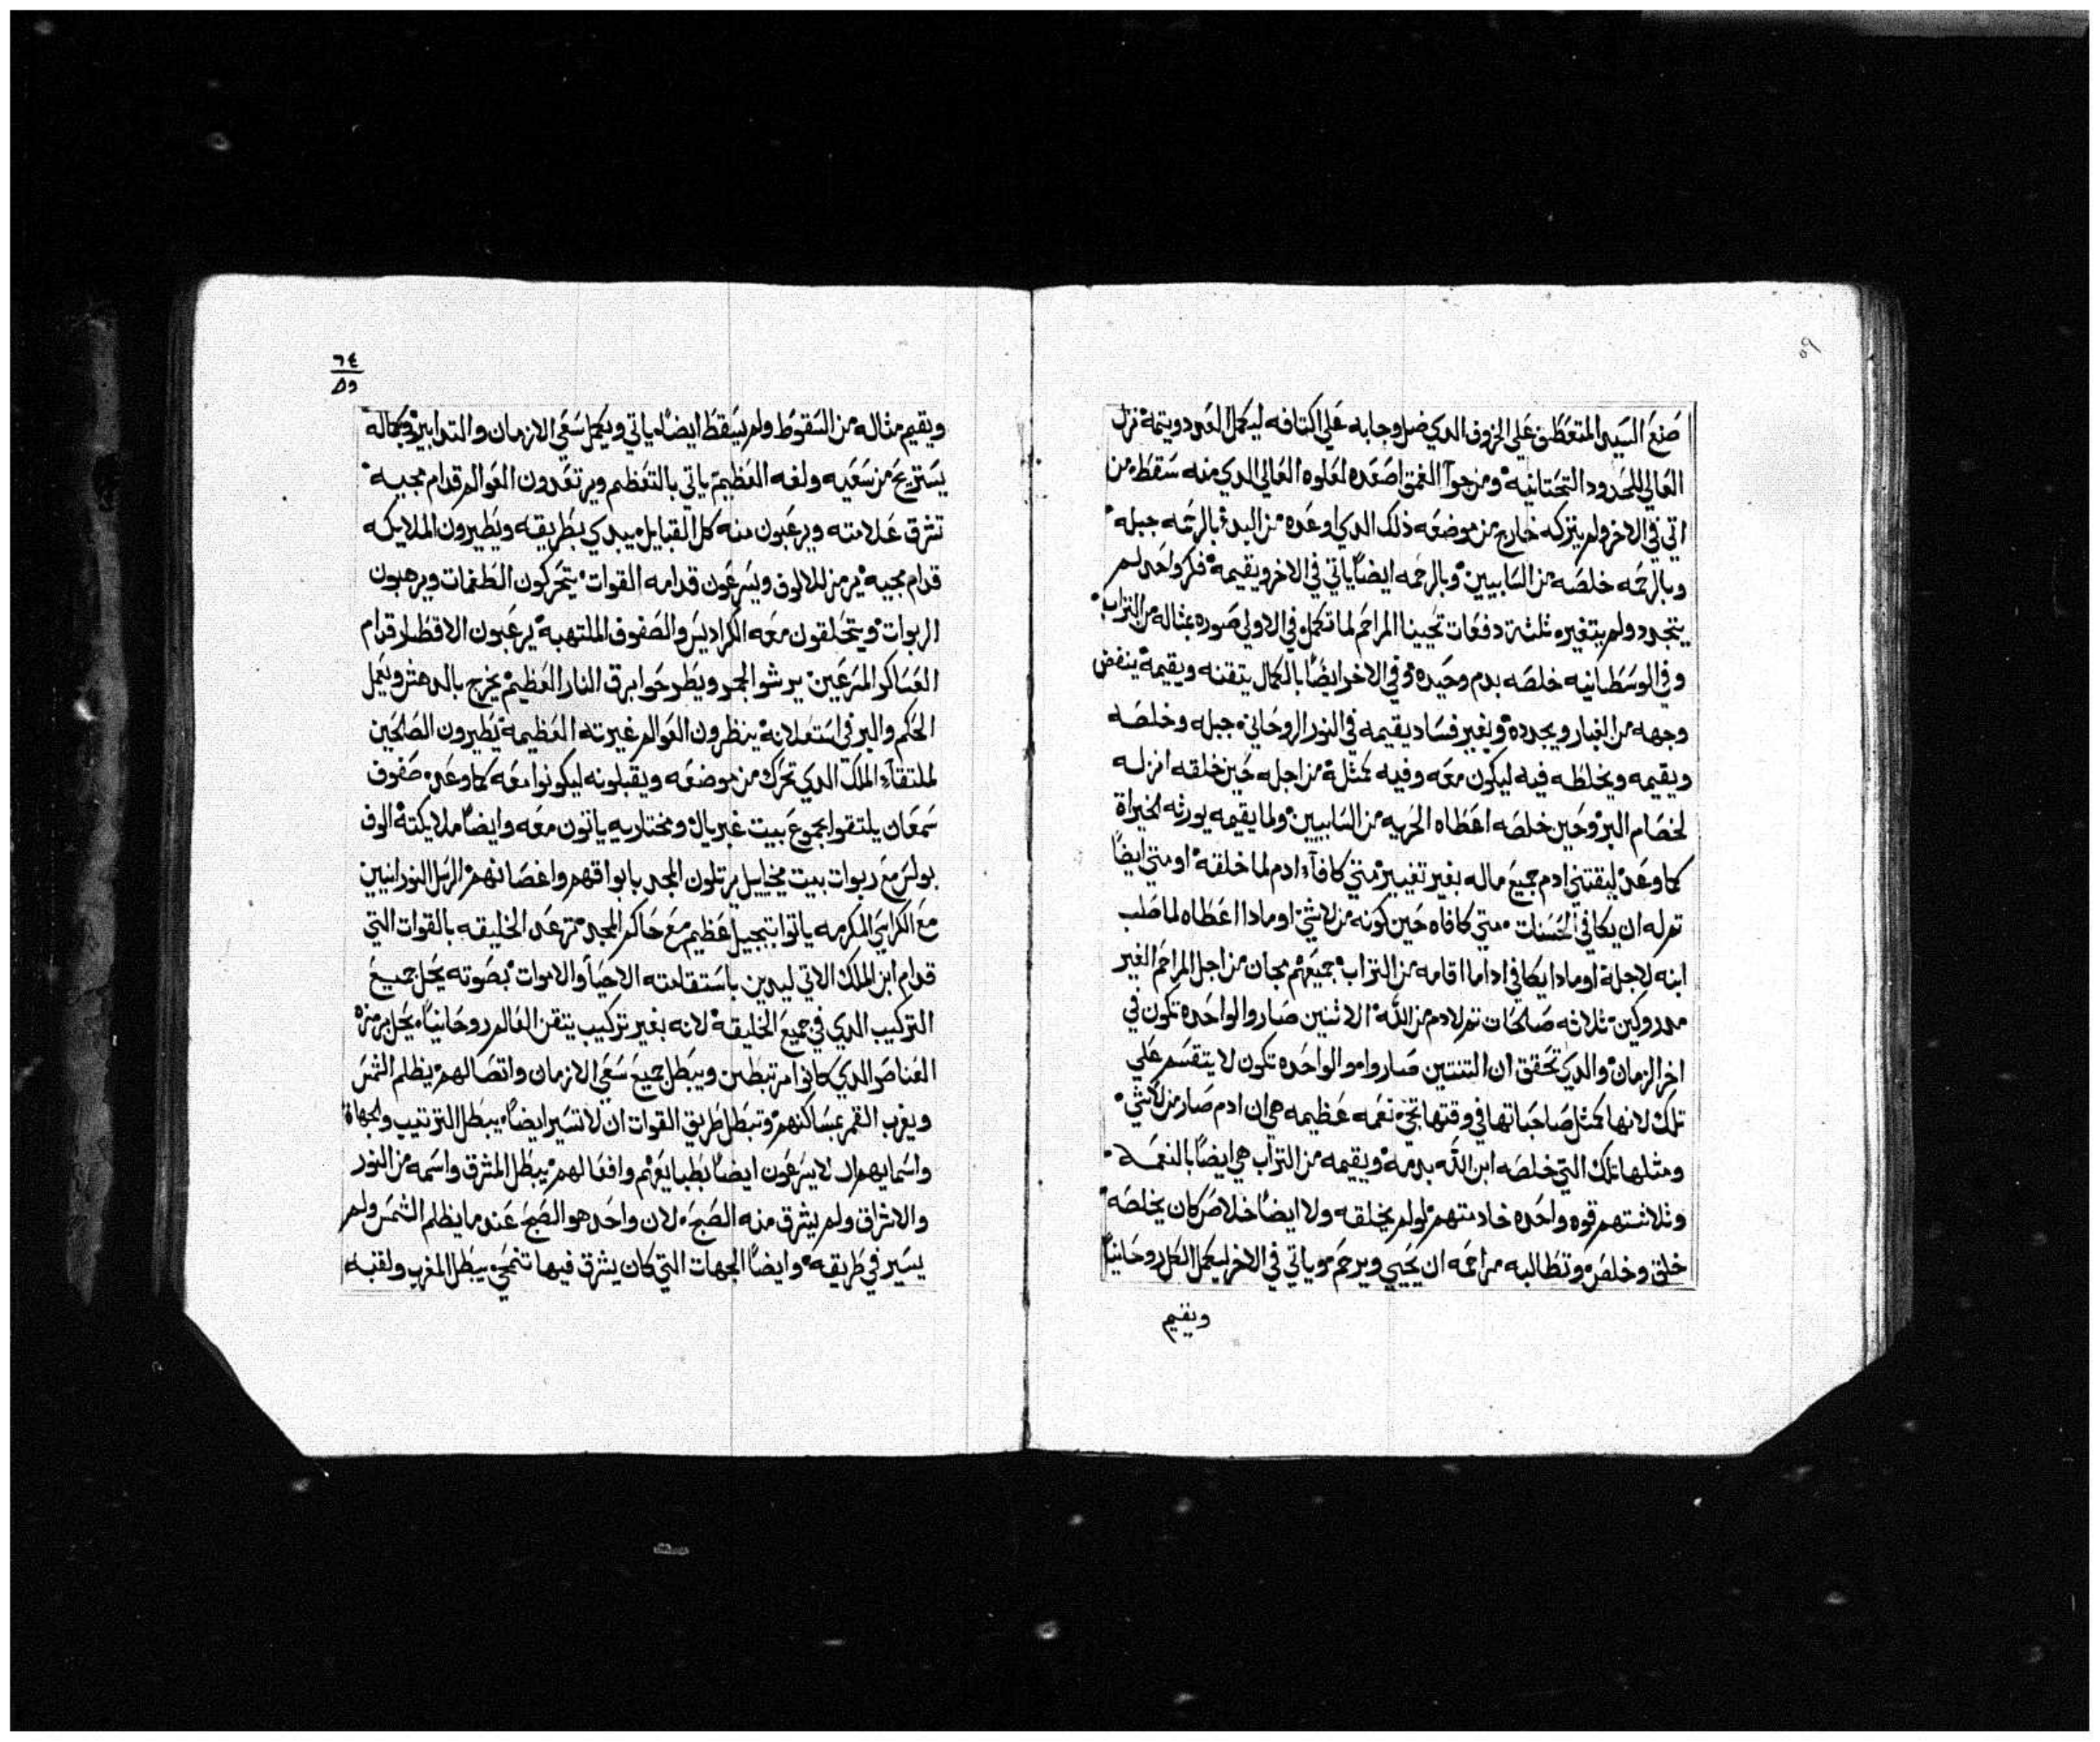 ٥٩
صنع السيد المتعطف علي الخروف الدي ضل وجابه علي اكتافه ليكمل العدد ويتمه نزل
العالي للحدود التحتانيه ومن جوا الغمق اصعده لعلوه العالي الدي منه سقط من
اتي في الاخر ولم يتركه خارج من موضعه ذلك الدي اوعده من البدء بالرحمه جبله
وبالرحمه خلصه من السابيين وبالرحمه ايضاً ياتي في الاخر ويقيمه فكر واحد لم
يتجدد ولم يتغير ثلثة دفعات تحيينا المراحم لما تكمل في الاولي صوره بمثاله من التراب
وفي الوسطانيه خلصه بدم وحيده وفي الاخر ايضاً بالكمال يتقنه ويقيمه ينفض
وجهه من الغبار ويجدده وبغير فساد يقيمه في النور الروحاني جبله وخلصه
ويقيمه ويخلطه فيه ليكون معه وفيه كمثله من اجله حين خلقه انزله
لخصام البر وحين خلصه اعطاه الحريه من السابيين ولما يقيمه يورثه الخيراة
كما وعد ليقتني ادم جميع ماله بغير تغيير متي كافاء ادم لما خلقه او متي ايضاً
تم له ان يكافي الحسنات متي كافاه حين كونه من لاشي او مادا اعطاه لما صلب
ابنه لاجله او مادا يكافي ادا ما اقامه من التراب جميعهم مجان من اجل المراحم الغير
مدروكين ثلاثه صالحات تم لادم من الله الاثنين صاروا الواحده تكون في
اخر الزمان والدي تحقق ان التنتين صاروا مو الواحده تكون لا يتقسم علي
تلك لانها كمثل صاحباتها في وقتها تجي نعمه عظيمه هي ان ادم صار من لاشي
ومثلها تلك التي خلصه ابن الله بدمه ويقيمه من التراب هي ايضاً بالنعمه
وثلاثتهم قوه واحده خادمتهم لو لم يخلقه ولا ايضاً خلاص كان يخلصه
خلق وخلص وتطالبه مراحمه ان يحيي ويرحم وياتي في الاخر ليكمل الكل روحانياً
ويقيم
٦٤
٥٩
ويقيم مثاله من السقوط ولم يسقط ايضاً ياتي ويكمل سعي الازمان والتدابير وبكماله
يستريح من سعيه ولفه العظيم ياتي بالتعظم ويرتعدون العوالم قدام مجيه
تشرق علامته ويرعبون منه كل القبايل يبدي بطريقه ويطيرون الملايكه
قدام مجيه يرمز للالوف ويسرعون قدامه القوات يتحركون الطغمات ويرهبون
الربوات ويتحلقون معه الكراديس والصفوف الملتهبه يرعبون الاقطار قدام
العساكر المرعبين يرشوا الجمر ويطرحوا برق النار العظيم يخرج بالدهش ويعمل
الحكم والبر في استعلانه ينظرون العوالم غيرته العظيمه يطيرون الصالحين
لملتقاء الملك الدي تحرك من موضعه ويقبلونه ليكونوا معه كما وعد صفوف
سمعان يلتقوا بجموع بيت غبريال ومختاريه ياتون معه وايضاً ملايكته الوف
بولس مع ربوات بيت ميخاييل يرتلون المجد بابواقهم واغصانهم الرسل النورانيين
مع الكراسي المكرمه ياتوا بتبجيل عظيم مع حاكم المجد ترعد الخليقه بالقوات التي
قدام ابن الملك الاتي ليدين باستقامته الاحيا والاموات بصوته يحل جميع
التركيب الدي في جميع الخليقه لانه بغير تركيب يتقن العالم روحانياً يحل برمزه
العناصر الدي كانوا مرتبطين ويبطل جميع سعي الازمان واتصالهم يظلم الشمس
ويغرب القمر بمساكنهم وتبطل طريق القوات ان لا تسير ايضاً يبطل الترتيب والجهاة
واسمايهم ان لا يسرعون ايضاً بطبايعهم وافعالهم يبطل المشرق واسمه من النور
والاشراق ولم يشرق منه الصبح لان واحد هو الصبح عندما يظلم الشمس ولم
يسير في طريقه وايضاً الجهات التي كان يشرق فيها تنمحي يبطل المغرب ولقبه